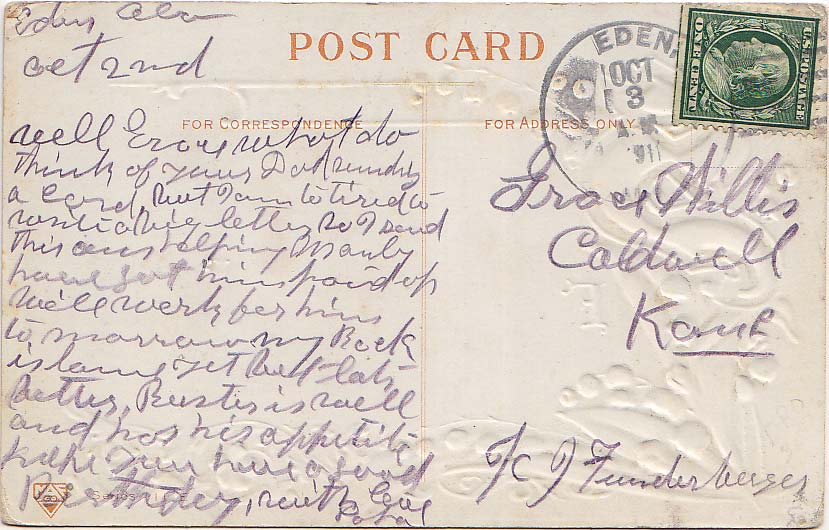 Eden
Oct 2nd
POST CARD
EDEN,
OCT
3
'91
U.S. POSTAGE
ONE CENT
FOR CORRESPONDENCE
FOR ADDRESS ONLY
well Grace what do
think of your Dad sending
a card, but I am to tired to
write a big letter so I send
this am helping Manly
have got him paid up
well work for him
to morrow my Back
is lame yet but lots
better, Buster is well
and has his appetite
hope you have a good
Birthday, with love
Papa
Grace Willis
Caldwell
Kans
Funderberger
Series